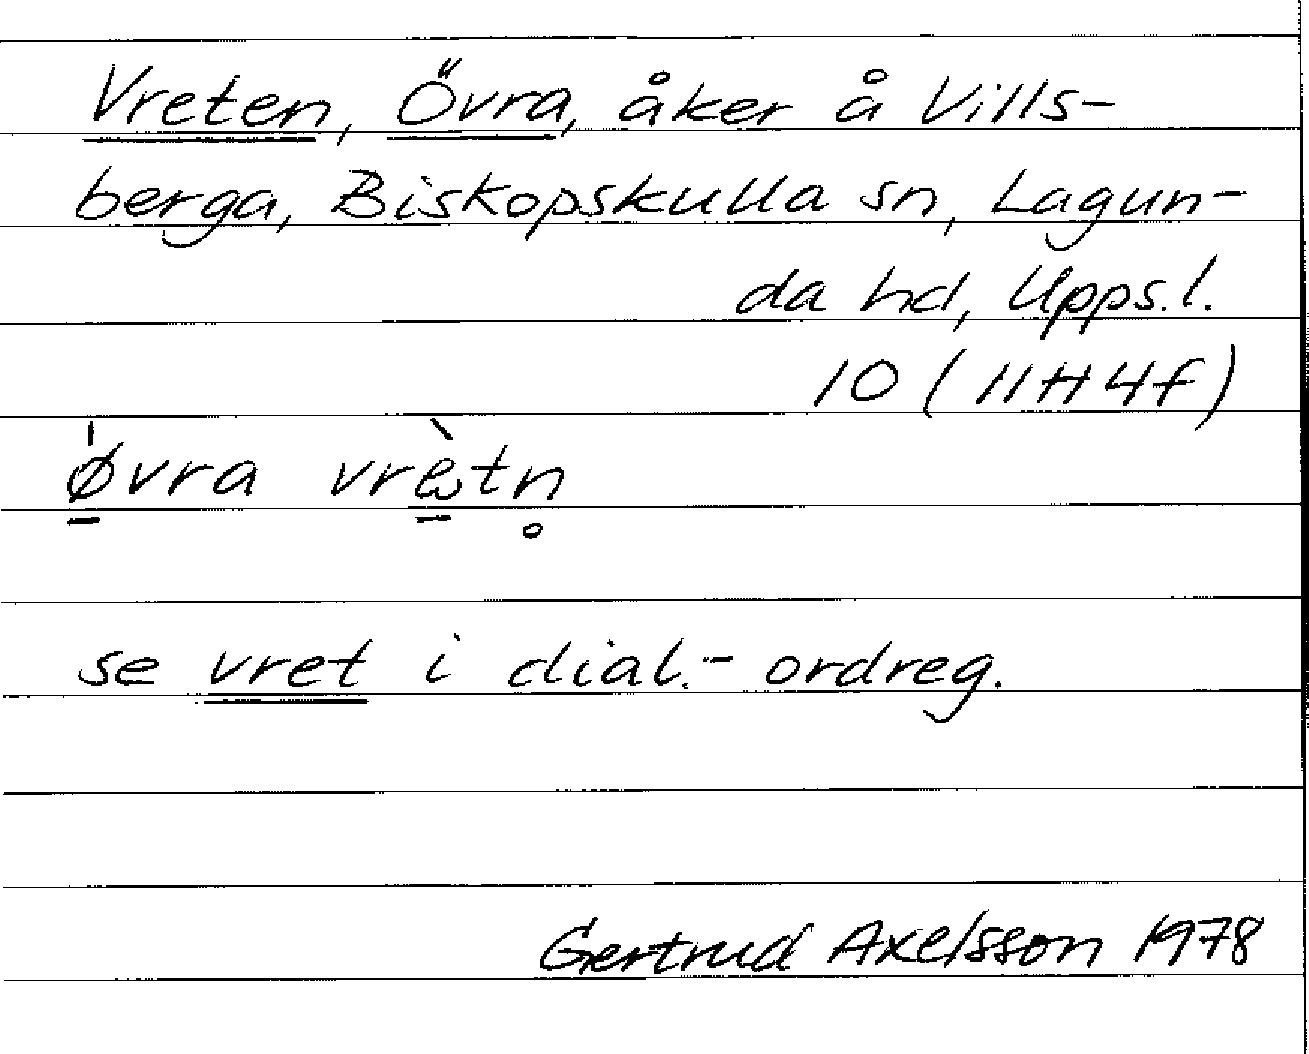 Vreten, Övra, åker å Vills-
berga, Biskopskulla sn, Lagun-
da hd, Upps.l.
10 (11H4f)
ǿ̱vra vrè̱tn̥
se vret i dial.-ordreg.
Gertrud Axelsson 1978